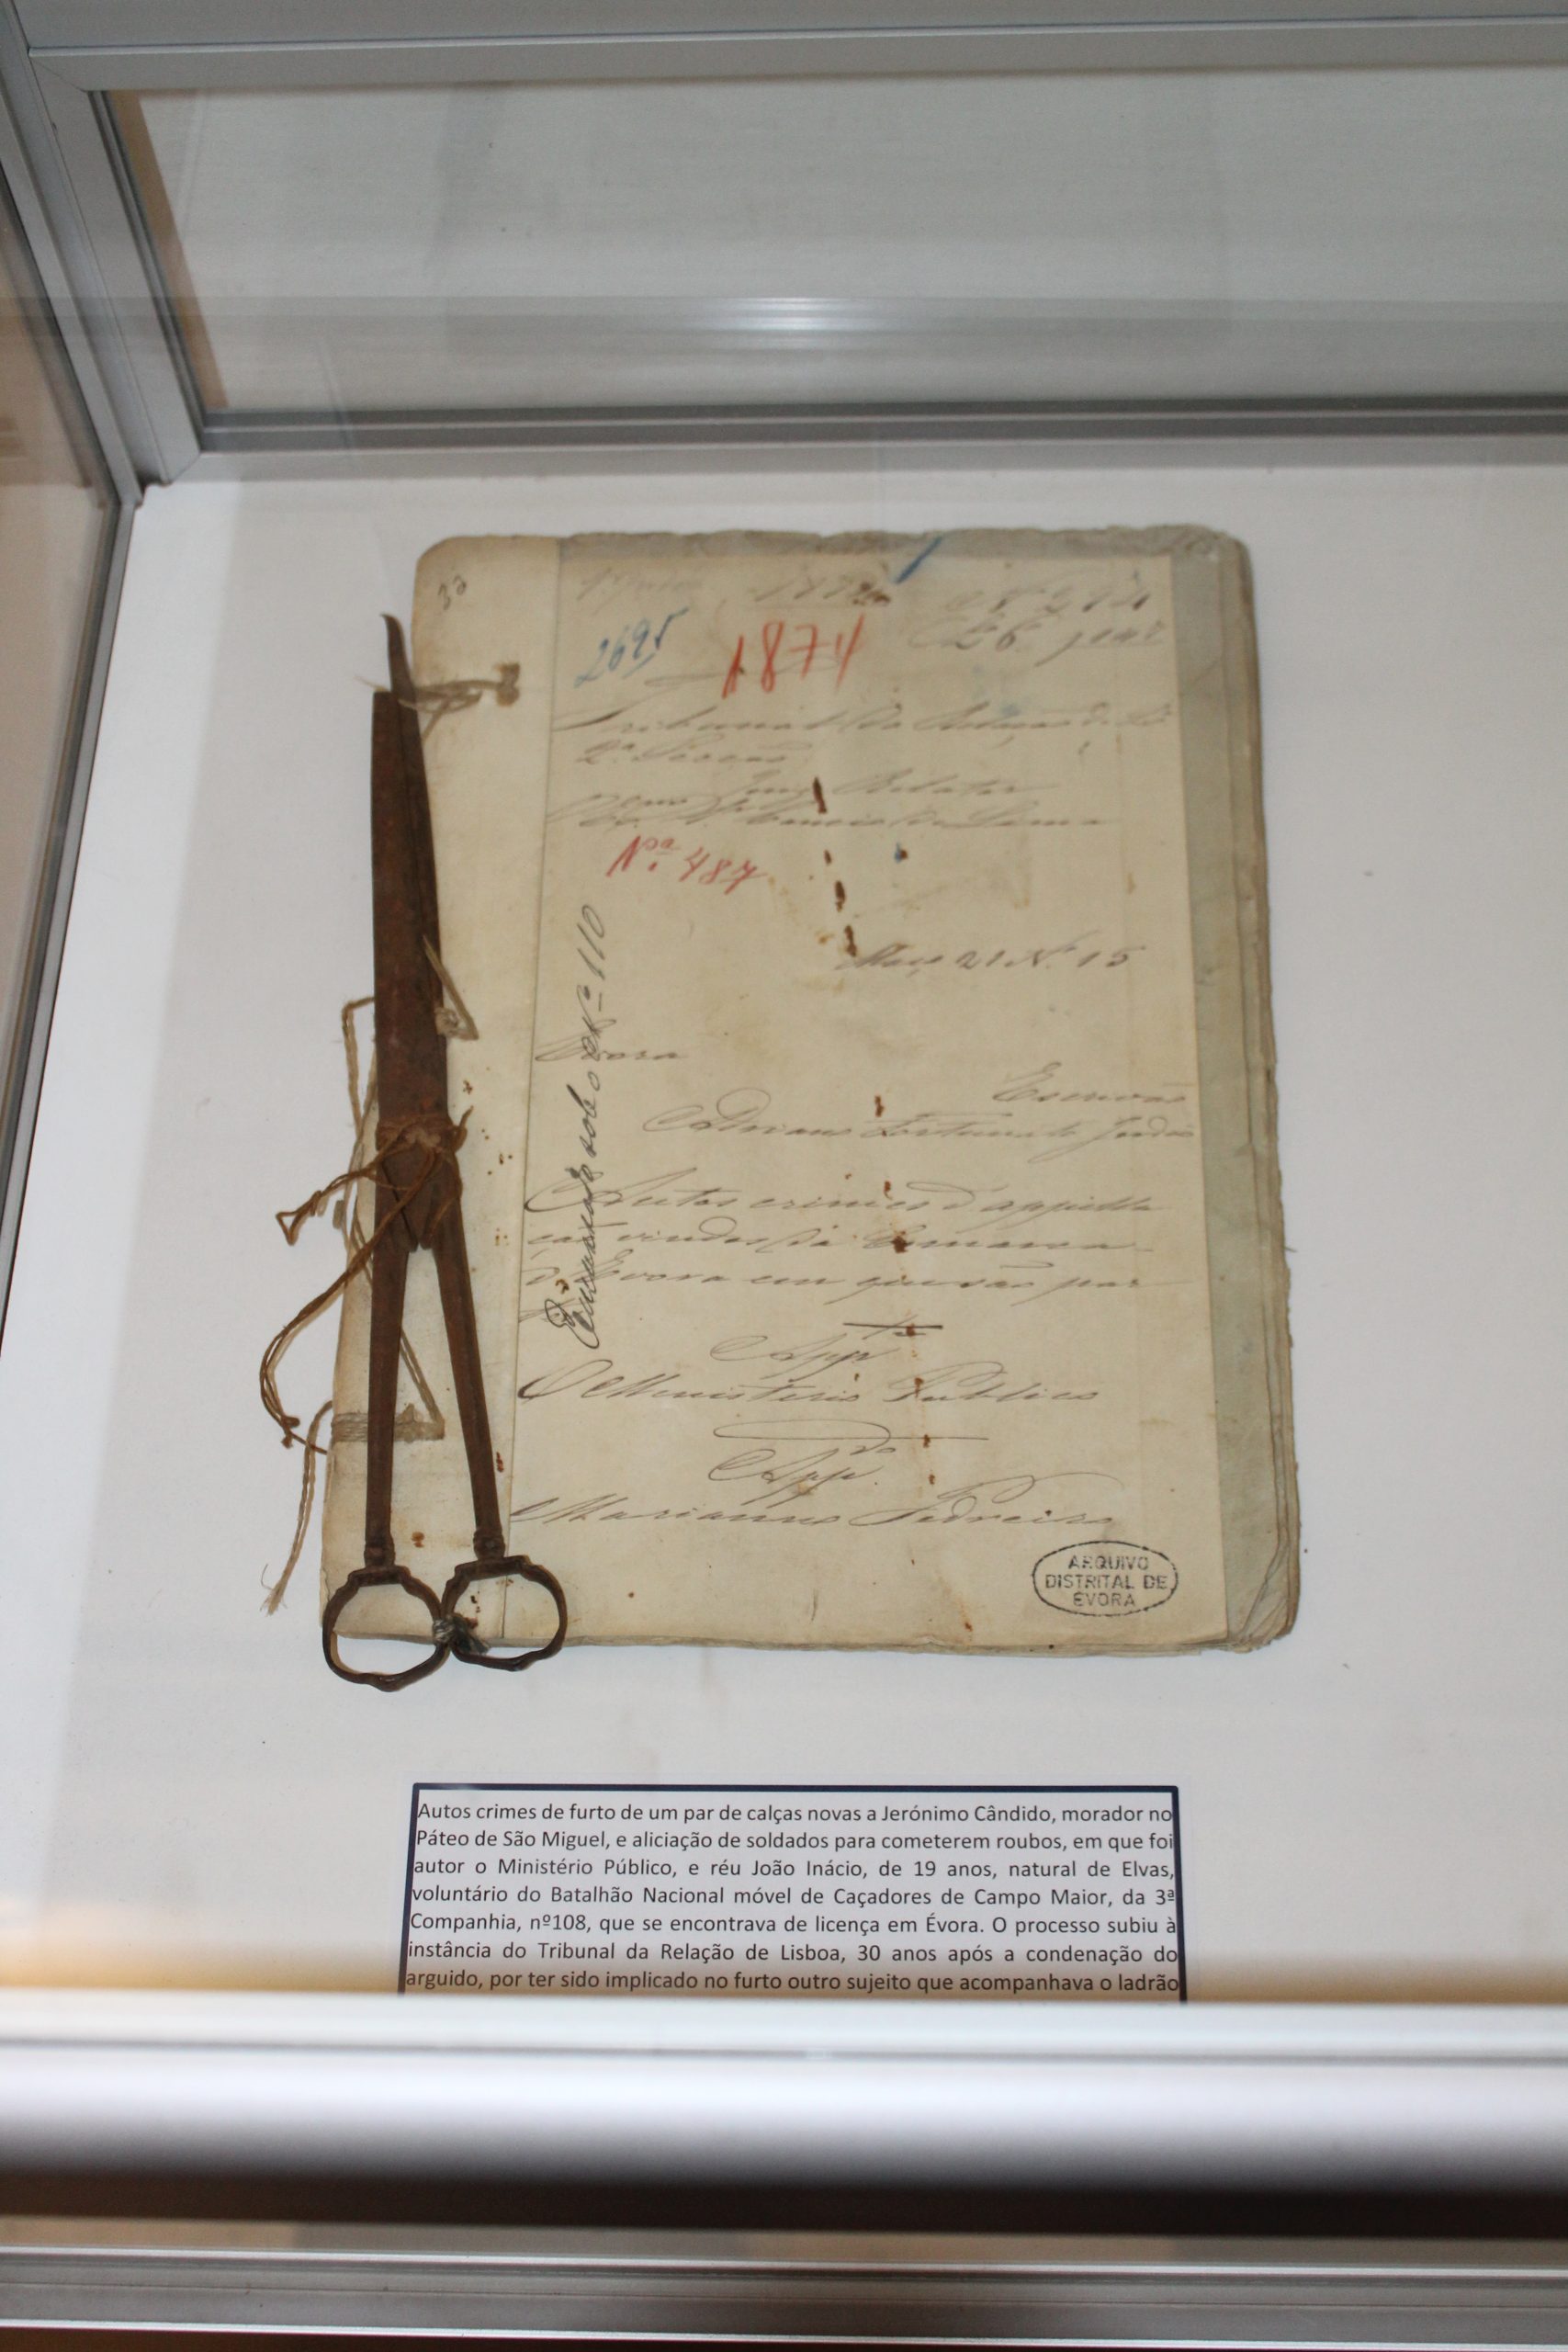 33
2695
1874
Tribunal da Relação de Li
2ª Secção
Juiz Relator
Nº 487
Maço 21 Nº 15
Evora
Nº 110
Escrivão
Adriano Fortunato
Autos crimes d'appella
ção vindos da Comarca
d'Evora em que são par
Appte
O Ministerio Publico
Appdo
Marianno Pedreira
ARQUIVO
DISTRITAL DE
ÉVORA
Autos crimes de furto de um par de calças novas a Jerónimo Cândido, morador no
Páteo de São Miguel, e aliciação de soldados para cometerem roubos, em que foi
autor o Ministério Público, e réu João Inácio, de 19 anos, natural de Elvas,
voluntário do Batalhão Nacional móvel de Caçadores de Campo Maior, da 3ª
Companhia, nº108, que se encontrava de licença em Évora. O processo subiu à
instância do Tribunal da Relação de Lisboa, 30 anos após a condenação do
arguido, por ter sido implicado no furto outro sujeito que acompanhava o ladrão